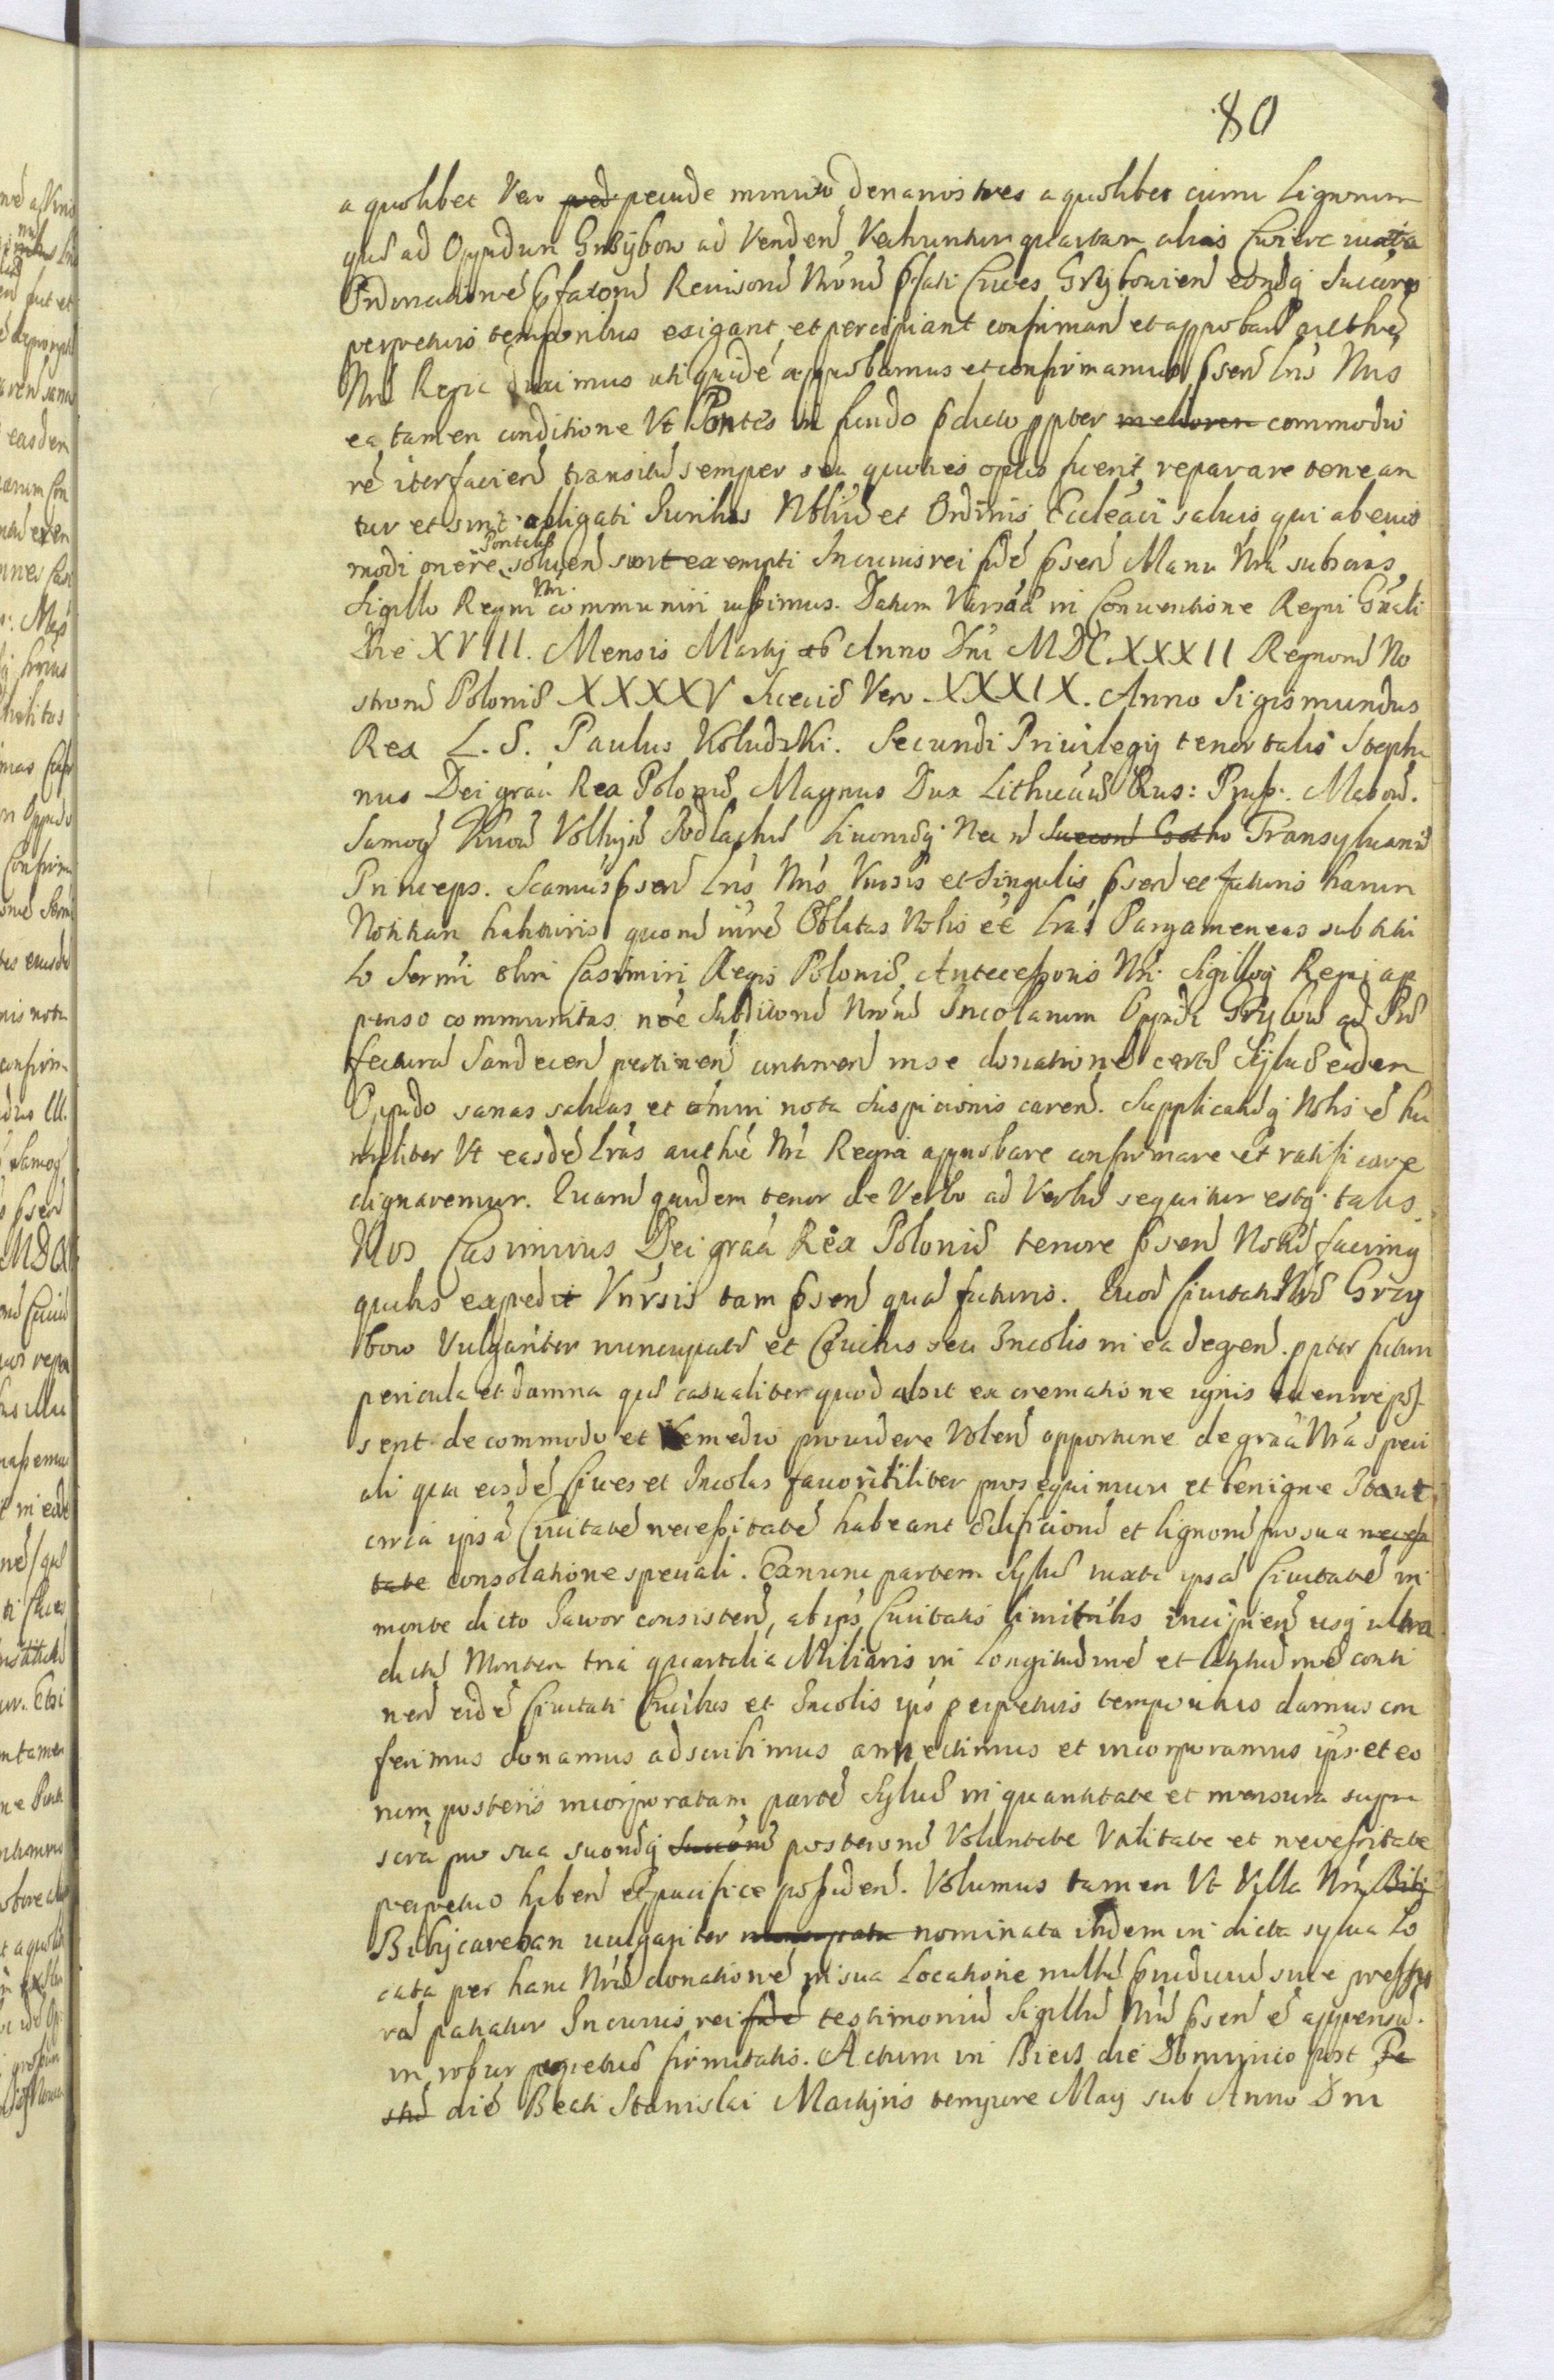 80
a quolibet Vero pred pecude minuto denarios tres a quolibet curru lignorum
que ad Oppidum Grzybow ad Vendend Vehuntur quartam alias Cwierc iuxta
Ordinatione pfatoru Reuisoru Nroru pfati Ciues Grzybouien eorudq Succres
perpetuis temporibus exigant et percipiant confirmand et approband authte
Nra Regia duximus uti quide approbamus et confirmamus psen lris Nris
ea tamen conditione Vt Pontes in fundo pdicto ppter meliorem commodio
re iter facien transitu semper seu quoties opus fuerit, reparare tenean
tur et sint obligati Juribus Nobiliu et Ordinis Eccleaci saluis qui ab eius
modi onere Pontalis soluen sunt exempti In cuius rei fide psen Manu Nra subscrias
Sigillo Regni Nri communiri iussimus. Datum Varsae in Conuentione Regni Gnali
Die XVIII. Mensis Martij ab Anno Dni MDC.XXXII Regnoru No
stroru Polonie XXXXV Sueciae Vero XXXIX. Anno Sigismundus
Rex L. S. Paulus Koludzki. Secundi Priuilegij tenor talis Stepha
nus Dei graa Rex Polonie Magnus Dux Lithuaie Rus: Prus: Masou.
Samog Kiiou Volhyn Podlachie Liuonieq Nec n Suecoru Gotho Transyluanie
Princeps. Scamus psen lris Nris Vnisis et Singulis psen et futuris harum
Notitiam habituris quoru inre Oblatas Nobis ee lras Pargameneas sub titu
lo Sermi olim Casimiri Regis Polonie Antecessoris Nri Sigilloq Regni ap
penso communitas noe Subditoru Nroru Incolarum Oppidi Grzybow ad Pre
fectura Sandecen pertinen continen in se donatione certe Sylue eidem
Oppido sanas saluas et omni nota Suspicionis caren. Supplicatuq Nobis e hu
militer Vt easde lras authte Nra Regia approbare confirmare et ratificare
dignaremur. Quaru quidem tenor de Verbo ad Verbu sequitur estq talis
Nos Casimirus Dei graa Rex Polonie tenore psen Notu facimq
quibus expedit Vnirsis tam psen qua futuris. Quod Ciuitatis Nre Grzy
bow Vulgariter nuncupate et Ciuibus seu Incolis in ea degen. ppter futura
pericula et damna que casualiter quod absit ex crematione ignis euenire pos
sent de commodo et remedio prouidere Volen opportune de graa Nra speci
ali qua eosde Ciues et Incolas fauorabiliter prosequimur et benigne Ita ut
circa ipsa Ciuitate necessitate habeant edificioru et lignoru pro sua necessi
tate consolatione speciali. Ex nunc partem Sylue iuxta ipsa Ciuitate in
monte dicto Jawor consisten, ab ips Ciuitatis limitibus incipien usq ultra
dictu Montem tria quartalia Miliaris in Longitudine et latitudine conti
nen eide Ciuitati Ciuibus et Incolis ips perpetuis temporibus damus con
ferimus donamus adscribimus annectimus et incorporamus ips et eo
rum posteris incorporatam parte Sylue in quantitate et mensura supra
scra pro sua suoruq Succoru posteroru Voluntate Vtilitate et necessitate
perpetuo haben et pacifice possiden. Volumus tamen Vt Villa Nra Biby
Bibijcareban uulgariter nuncupata nominata ibidem in dicta sylua lo
cata per hanc Nra donatione in sua Locatione nullu preiudiciu siue pressu
ra patiatur In cuius rei fide testimoniu Sigillu Nru psen e appensu.
in robur perpetue firmitatis. Actum in Biecz die Dominico post Fe
stu die Beati Stanislai Martyris tempore Maij sub Anno Dni